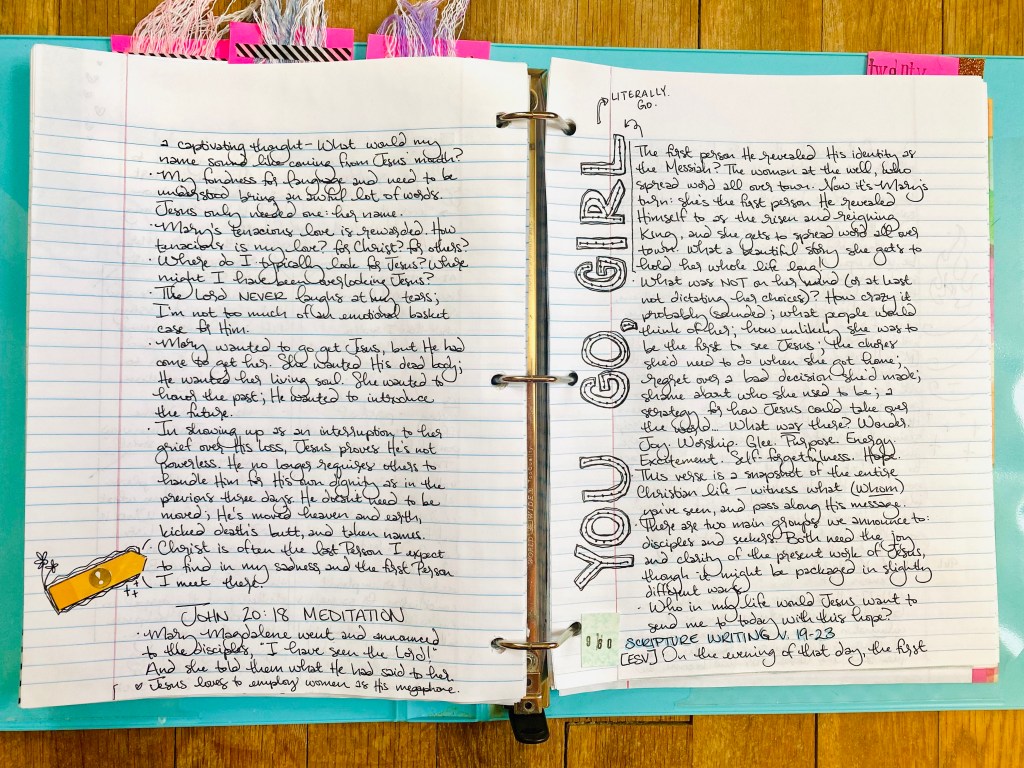 a captivating thought - What would my
name sound like coming from Jesus' mouth?
· My fondness for language and need to be
understood bring an awful lot of words.
Jesus only needed one: her name.
· Mary's tenacious love is rewarded. How
tenacious is my love? for Christ? for others?
· Where do I typically look for Jesus? Where
might I have been overlooking Jesus?
· The Lord NEVER laughs at my tears;
I'm not too much of an emotional basket
case for Him.
· Mary wanted to go get Jesus, but He had
come to get her. She wanted His dead body;
He wanted her living soul. She wanted to
honor the past; He wanted to introduce
the future.
· In showing up as an interruption to her
grief over His loss, Jesus proves He's not
powerless. He no longer requires others to
handle Him for His own dignity as in the
previous three days. He doesn't need to be
moved; He's moved heaven and earth,
kicked death's butt, and taken names.
· Christ is often the last Person I expect
to find in my sadness and the first Person
I meet there.
!
JOHN 20:18 MEDITATION
· Mary Magdalene went and announced
to the disciples, "I have seen the Lord!"
And she told them what He had said to her.
♡ Jesus loves to employ women as His megaphone.
twenty
LITERALLY.
GO.
YOU GO, GIRL
The first person He revealed His identity as
the Messiah? The woman at the well, who
spread word all over town. Now it's Mary's
turn: she's the first person He revealed
Himself to as the risen and reigning
King, and she gets to spread word all over
town. What a beautiful story she gets to
hold her whole life long!
· What was NOT on her mind (or at least
not dictating her choices)? How crazy it
probably sounded; what people would
think of her; how unlikely she was to
be the first to see Jesus; the chores
she'd need to do when she got home;
regret over a bad decision she'd made;
shame about who she used to be; a
strategy for how Jesus could take over
the world... What was there? Wonder.
Joy. Worship. Glee. Purpose. Energy.
Excitement. Self-forgetfulness. Hope.
· This verse is a snapshot of the entire
Christian life - witness what (Whom)
you've seen, and pass along His message.
· There are two main groups we announce to:
disciples and seekers. Both need the joy
and clarity of the present work of Jesus,
though it might be packaged in slightly
different ways.
· Who in my life would Jesus want to
send me to today with this hope?
SCRIPTURE WRITING V. 19-23
[ESV] On the evening of that day, the first